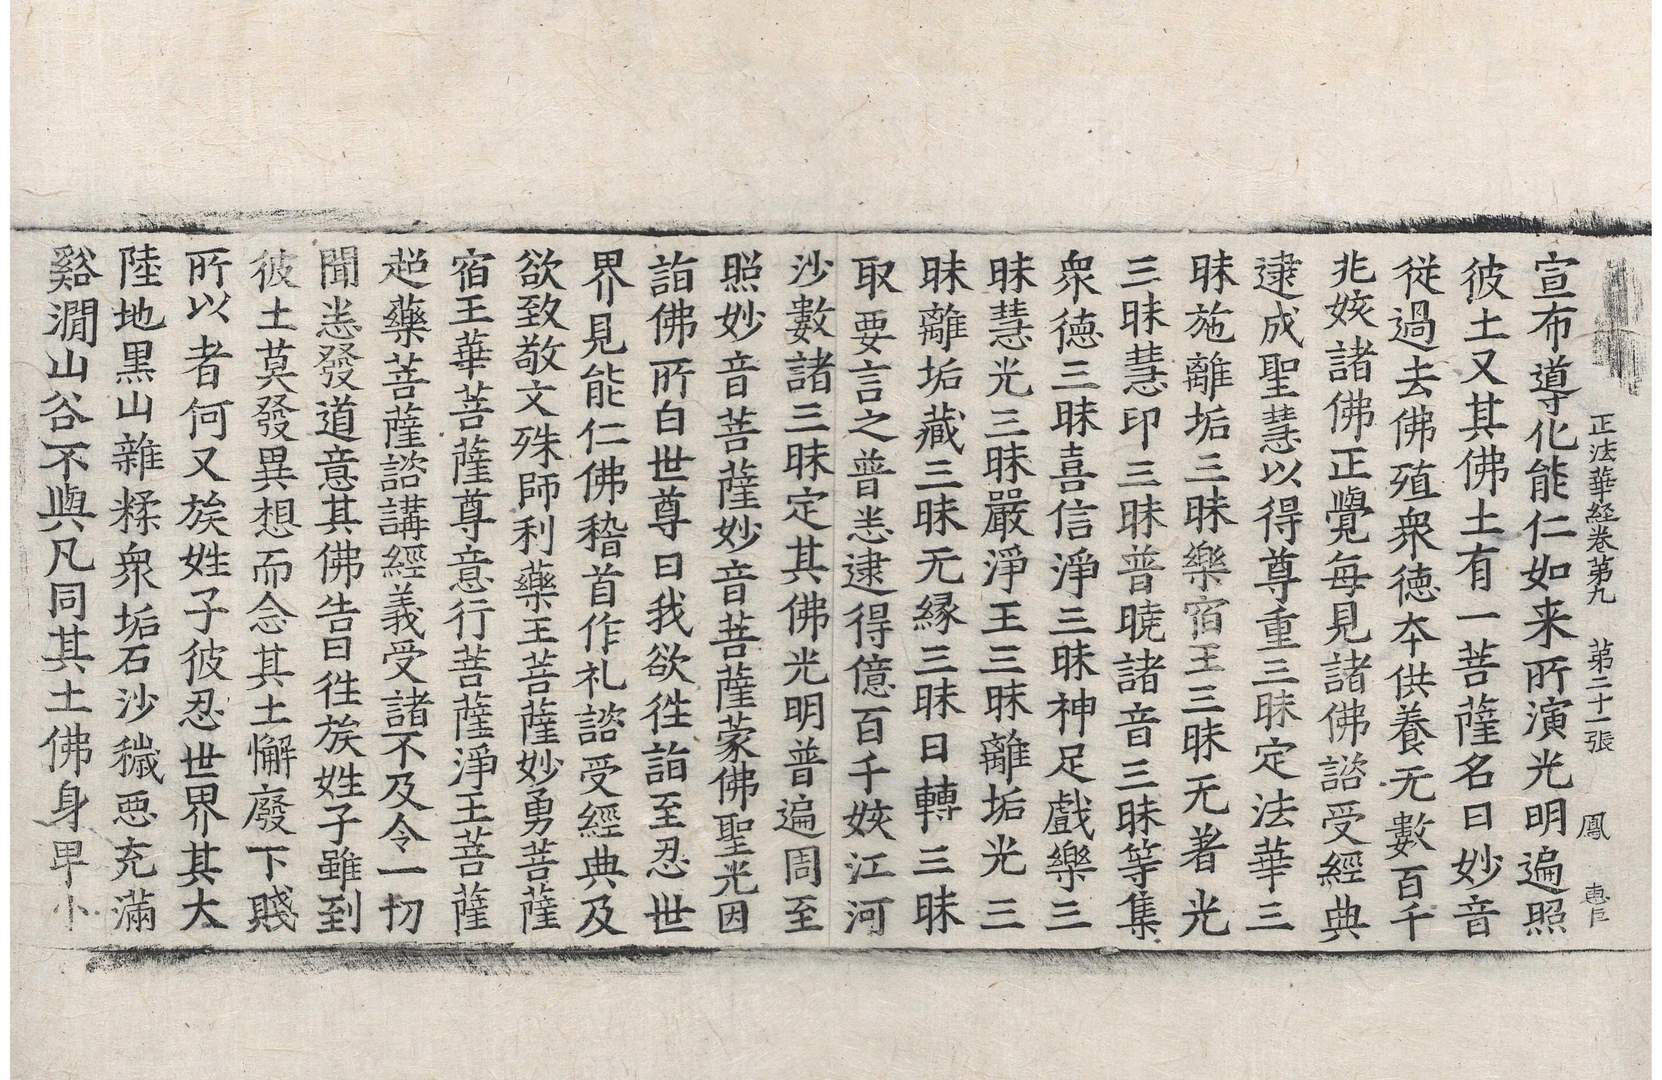 正法華経卷第九 第二十一張 鳳 惠
宣布導化能仁如来所演光明遍照
彼土又其佛土有一菩薩名曰妙音
從過去佛殖衆徳夲供養无數百千
兆姟諸佛正覺每見諸佛諮受經典
逮成聖慧以得尊重三昧定法華三
昧施離垢三昧樂宿王三昧无著光
三昧慧印三昧普曉諸音三昧等集
衆德三昧喜信淨三昧神足戲樂三
昧慧光三昧嚴淨王三昧離垢光三
昧離垢藏三昧无縁三昧日轉三昧
取要言之普恙逮得億百千姟江河
沙數諸三昧定其佛光明普遍周至
照妙音菩薩妙音菩薩蒙佛聖光因
詣佛所白世尊曰我欲徃詣至忍世
界見能仁佛稽首作礼諮受經典及
欲致敬文殊師利藥王菩薩妙勇菩薩
宿王華菩薩尊意行菩薩淨王菩薩
超藥菩薩諮講經義受諸不及令一切
聞恙發道意其佛告曰徃族姓子雖到
彼土莫發異想而念其土懈廢下賤
所以者何又族姓子彼忍世界其大
陸地黒山雜糅衆垢石沙穢惡充滿
谿澗山谷不與凡同其土佛身卑小